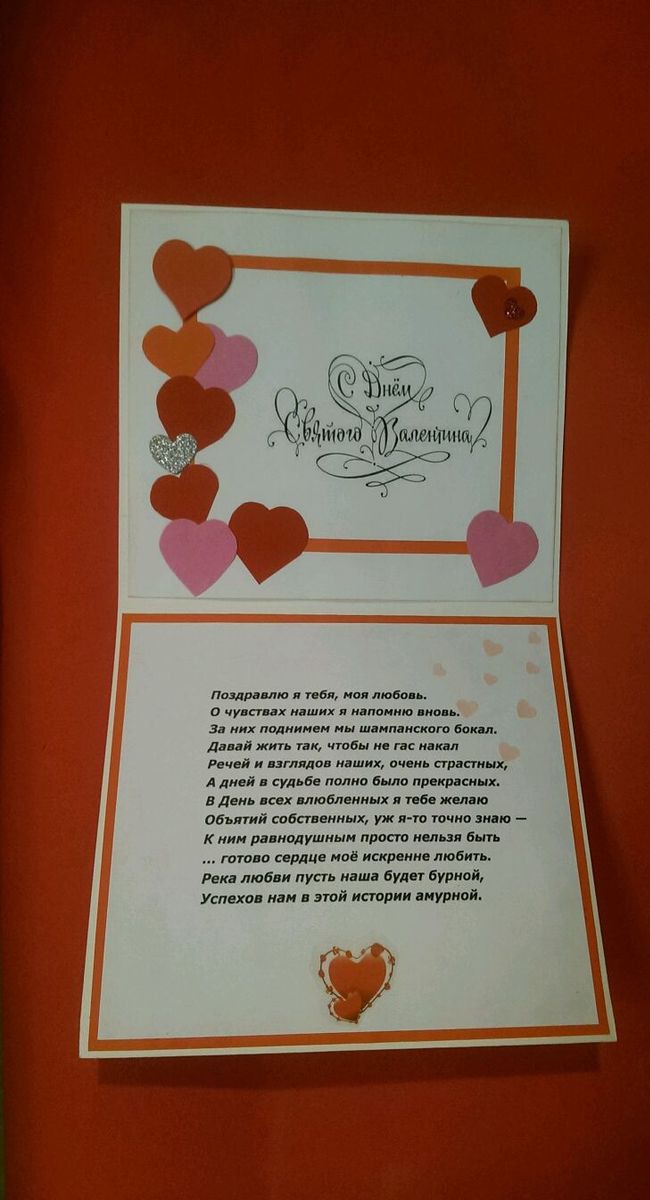 С Днём
Святого Валентина
Поздравлю я тебя, моя любовь.
О чувствах наших я напомню вновь.
За них поднимем мы шампанского бокал.
Давай жить так, чтобы не гас накал
Речей и взглядов наших, очень страстных,
А дней в судьбе полно было прекрасных.
В День всех влюбленных я тебе желаю
Объятий собственных, уж я-то точно знаю —
К ним равнодушным просто нельзя быть
... готово сердце моё искренне любить.
Река любви пусть наша будет бурной,
Успехов нам в этой истории амурной.